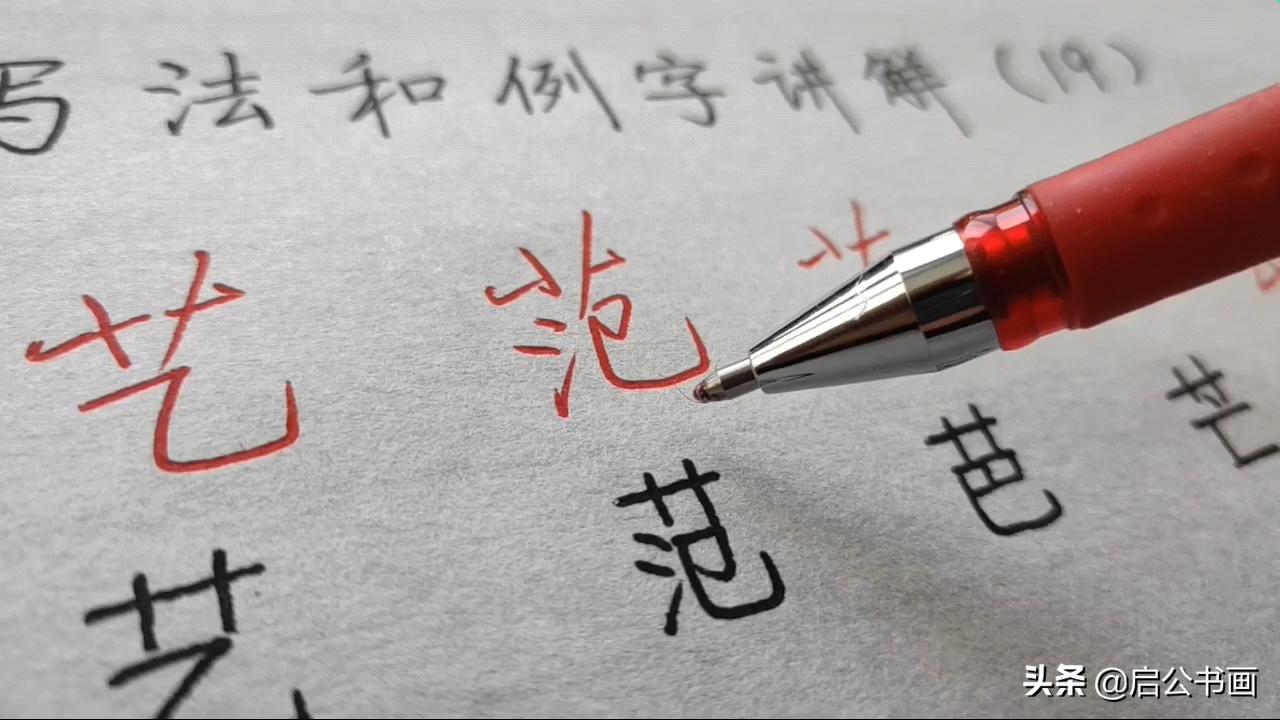 写法和例字讲解(19)
艺 范 艹
艺 范 芭 芒
头条 @启公书画